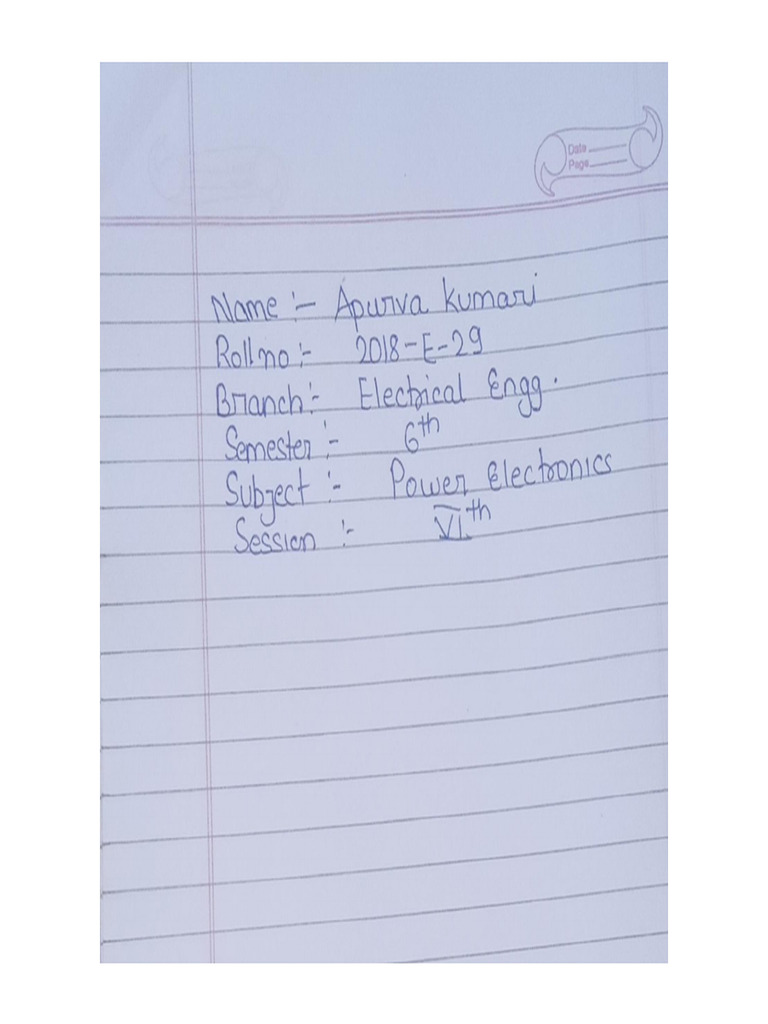 Date
Page
Name :- Apurva Kumari
Roll no :- 2018-E-29
Branch :- Electrical Engg.
Semester :- 6th
Subject :- Power Electronics
Session :- VIth